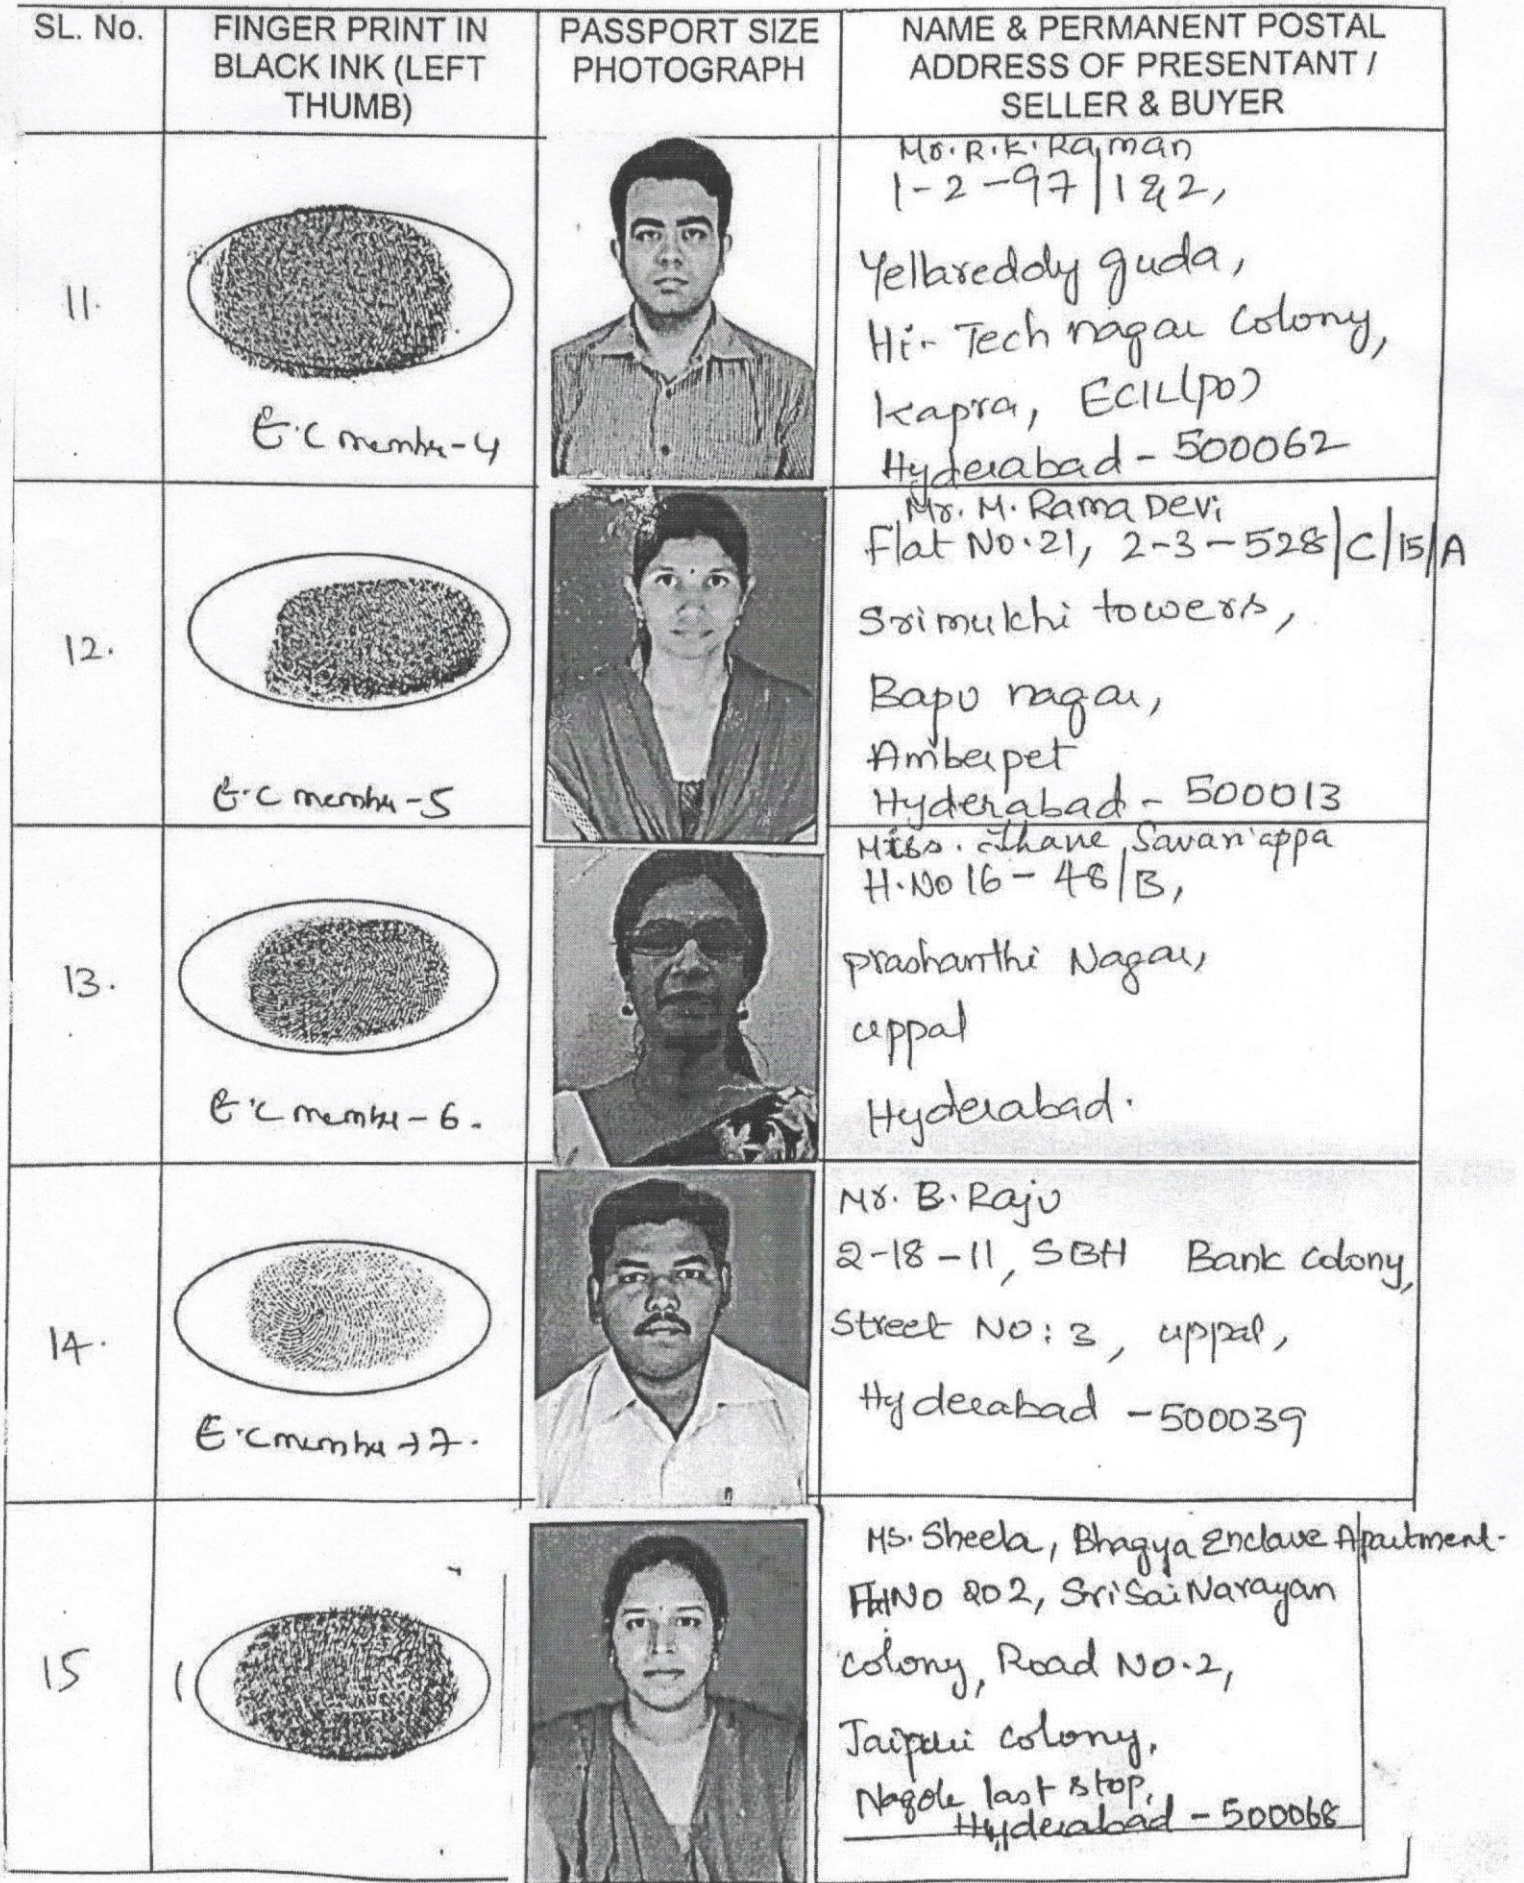 SL. No.
FINGER PRINT IN
BLACK INK (LEFT
THUMB)
PASSPORT SIZE
PHOTOGRAPH
NAME & PERMANENT POSTAL
ADDRESS OF PRESENTANT /
SELLER & BUYER
11.
E.C member-4
Mr. R.K. Raman
1-2-97/1&2,
Yellareddy guda,
Hi-Tech nagar Colony,
Kapra, ECIL(PO)
Hyderabad - 500062
12.
E.C member-5
Mr. M. Rama Devi
Flat No.21, 2-3-528/C/15/A
Srimukhi towers,
Bapu nagar,
Amberpet
Hyderabad - 500013
13.
E.C member-6.
Savariappa
H.No 16-48/B,
prashanthi Nagar,
uppal
Hyderabad.
14.
E.C member-7.
Mr. B. Raju
2-18-11, SBH Bank colony,
Street No: 3, uppal,
Hyderabad - 500039
15
Ms. Sheela, Bhagya Enclave Apartment-
No 202, Sri Sai Narayan
colony, Road No.2,
Jaipuri colony,
Nagole last stop,
Hyderabad - 500068